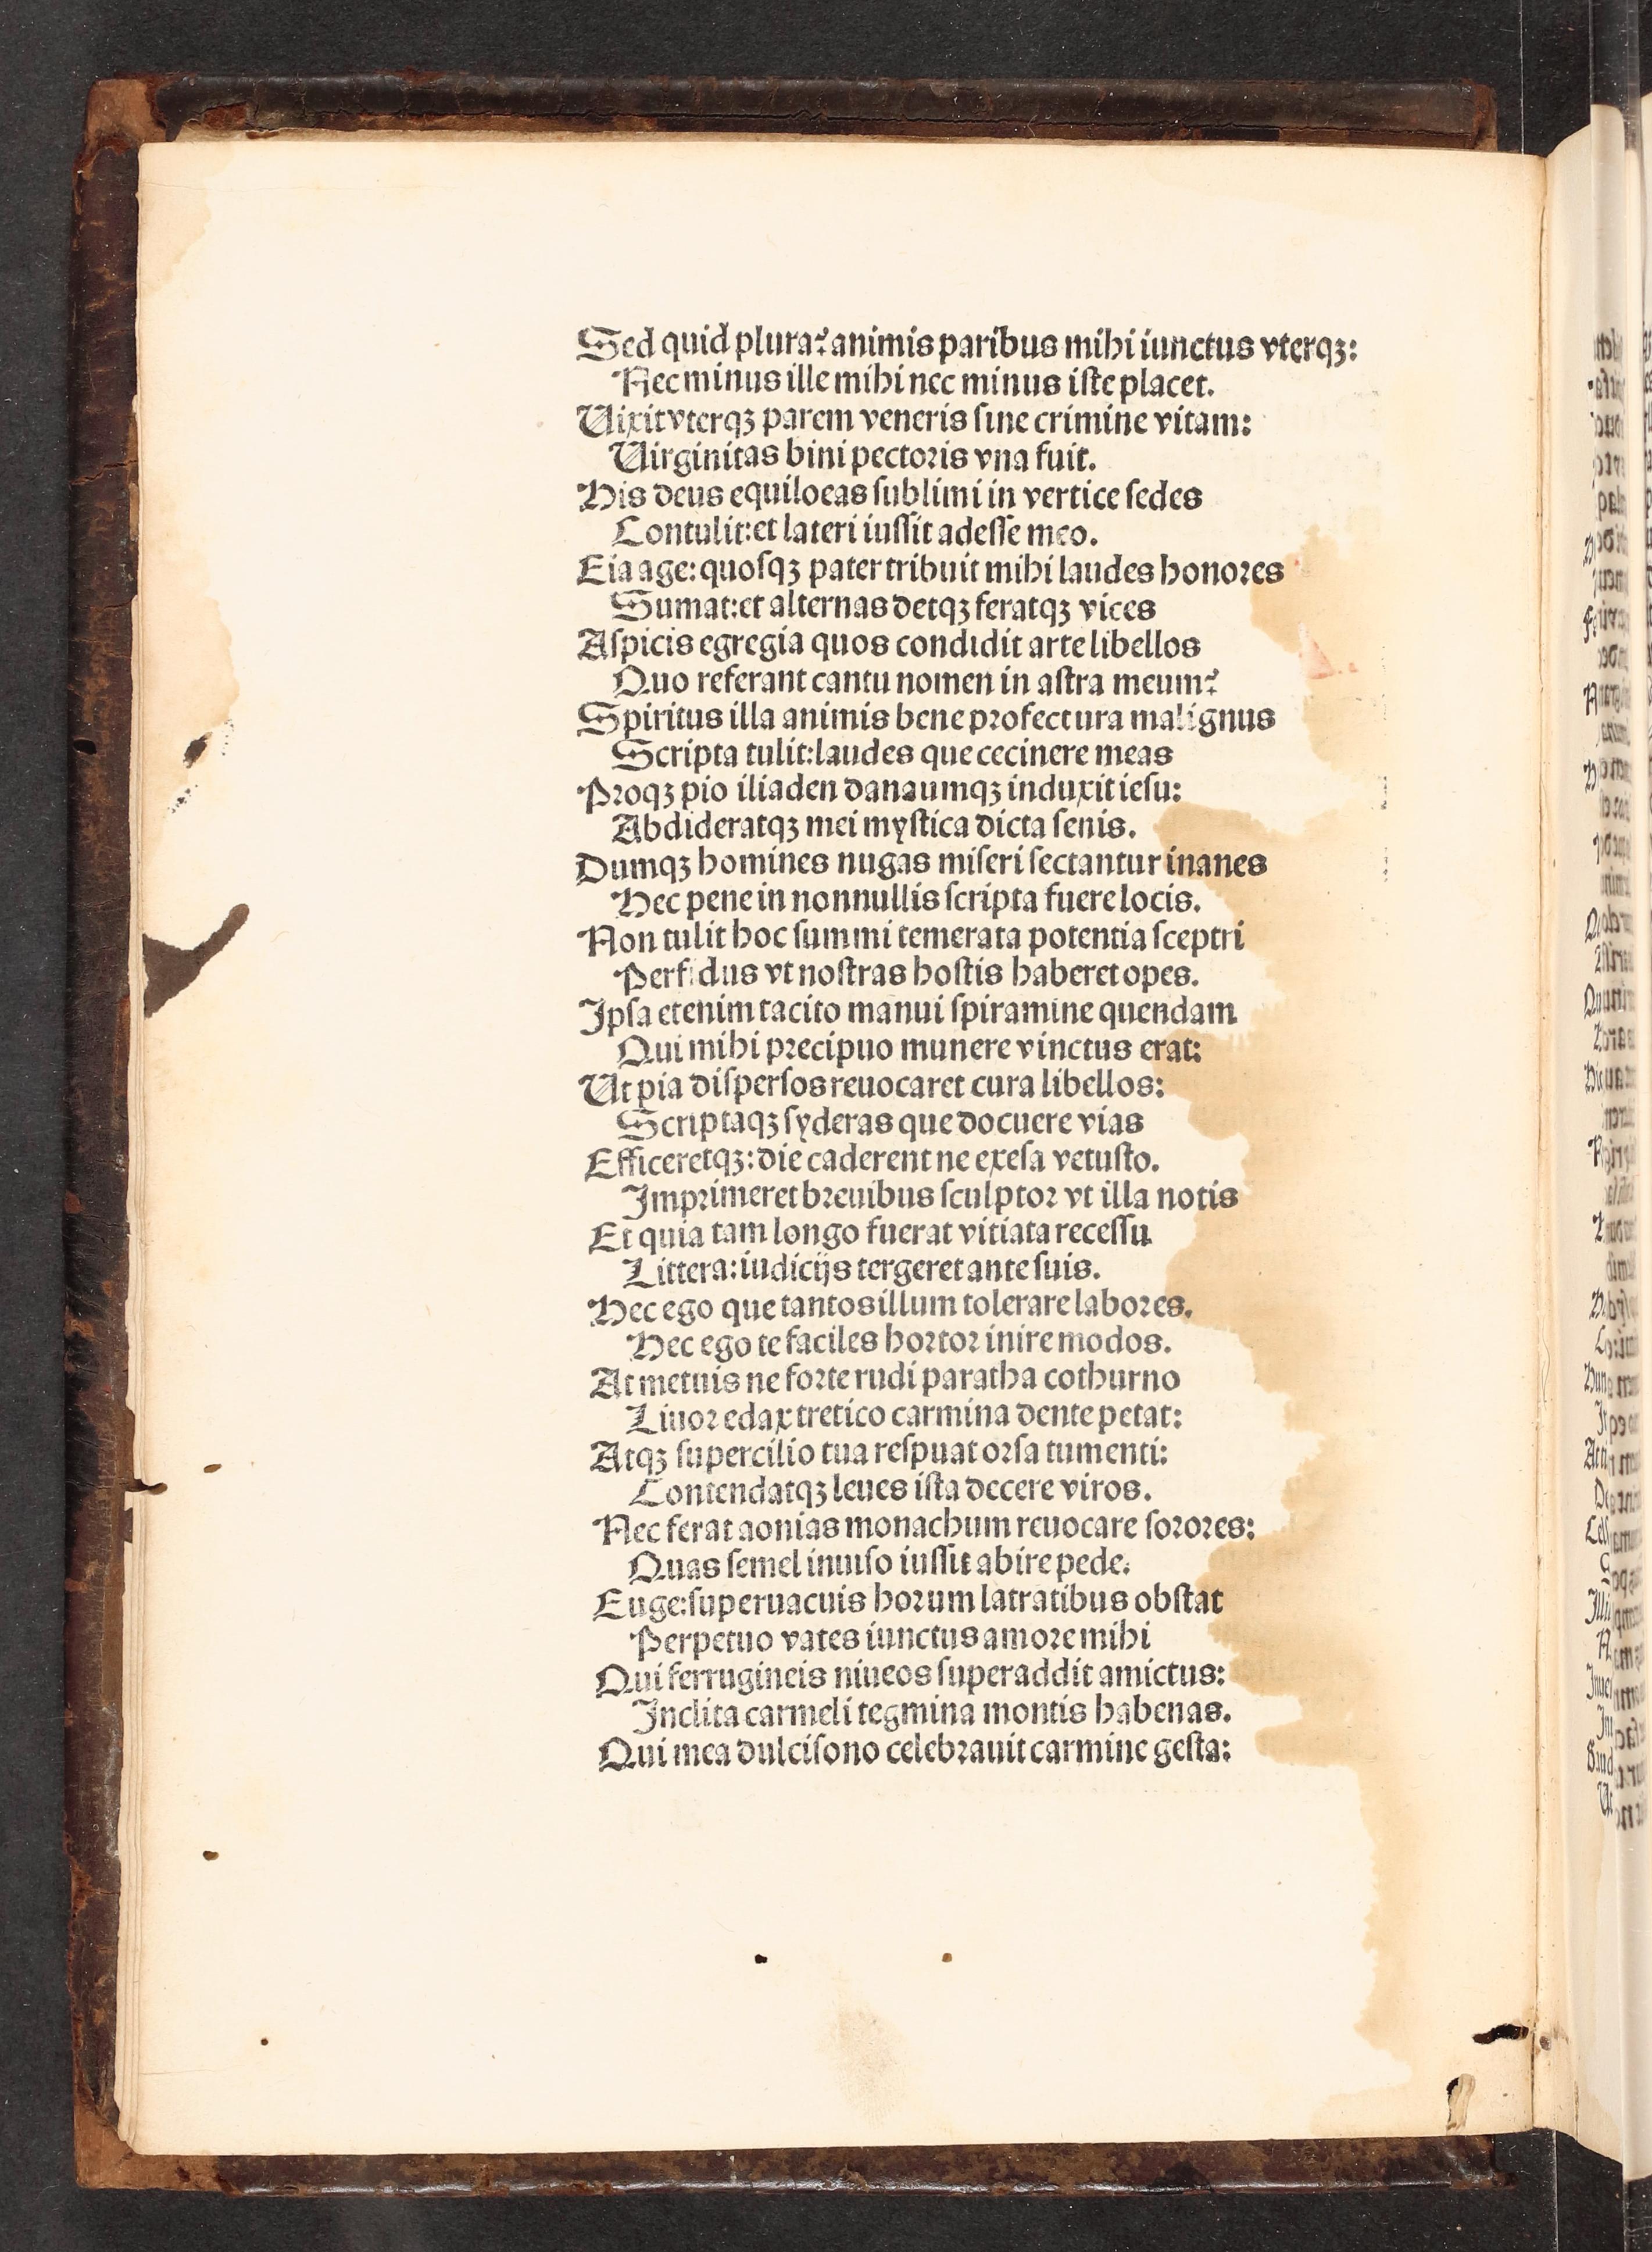 Sed quid plura? animis paribus mihi iunctus vterqꝫ:
Nec minus ille mihi nec minus iſte placet.
Uixit vterqꝫ parem veneris ſine crimine vitam:
Uirginitas bini pectoris vna fuit.
His deus equiloeas ſublimi in vertice ſedes
Contulit: et lateri iuſſit adeſſe meo.
Eia age: quoſqꝫ pater tribuit mihi laudes honores
Sumat: et alternas detqꝫ feratqꝫ vices
Aſpicis egregia quos condidit arte libellos
Quo referant cantu nomen in aſtra meum?
Spiritus illa animis bene profectura malignus
Scripta tulit: laudes que cecinere meas
Proqꝫ pio iliaden danaumqꝫ induxit ieſu:
Abdideratqꝫ mei myſtica dicta ſenis.
Dumqꝫ homines nugas miſeri ſectantur inanes
Hec pene in nonnullis ſcripta fuere locis.
Non tulit hoc ſummi temerata potentia ſceptri
Perfidus vt noſtras hoſtis haberet opes.
Ipſa etenim tacito manui ſpiramine quendam
Qui mihi precipuo munere vinctus erat:
Ut pia diſperſos reuocaret cura libellos:
Scriptaqꝫ ſyderas que docuere vias
Efficeretqꝫ: die caderent ne exeſa vetuſto.
Imprimeret breuibus ſculptor vt illa notis
Et quia tam longo fuerat vitiata receſſu
Littera: iudicijs tergeret ante ſuis.
Hec ego que tantos illum tolerare labores.
Hec ego te faciles hortor inire modos.
At metuis ne forte rudi paratha cothurno
Liuor edax tretico carmina dente petat:
Atqꝫ ſupercilio tua reſpuat orſa tumenti:
Contendatqꝫ leues iſta decere viros.
Nec ferat aonias monachum reuocare ſorores:
Quas ſemel inuiſo iuſſit abire pede.
Euge: ſuperuacuis horum latratibus obſtat
Perpetuo vates iunctus amore mihi
Qui ferrugineis niueos ſuperaddit amictus:
Inclita carmeli tegmina montis habenas.
Qui mea dulciſono celebrauit carmine geſta: